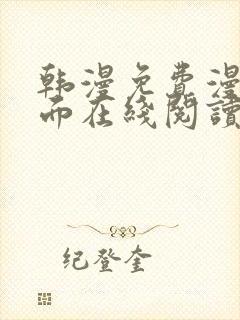 韩漫免费漫
而在线阅读
纪登奎